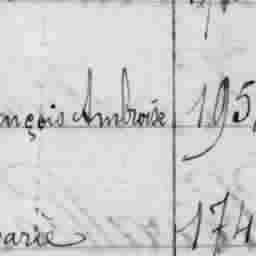 nçois Ambroise 195
arie 174